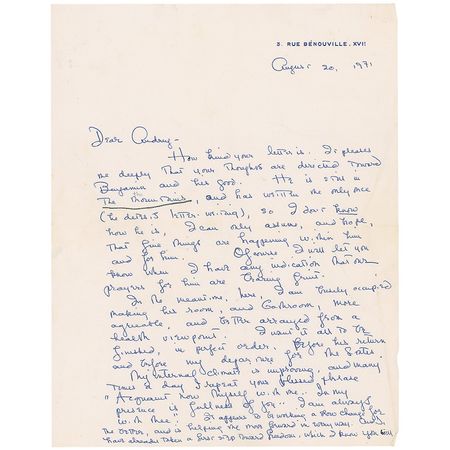 3. RUE BÉNOUVILLE. XVIE
August 20, 1971
Dear Audrey -
How kind your letter is. It pleases
me deeply that your thoughts are directed toward
Benjamin and his good. He is still in
the mountains, and has written me only once
(he detests letter-writing), so I don't know
how he is, I can only assume, and hope,
that fine things are happening within him
and for him. Of course I will let you
know when I have any indication that our
prayers for him are bearing fruit.
In the meantime, here, I am busily occupied
making his room, and bathroom, more
agreeable, and better arranged from a
health viewpoint. I want it all to be
finished, in perfect order, before his return
and before my departure for the States.
My internal climate is improving, and many
times a day I repeat your blessed phrase
"Acquaint now thyself with me. In my
presence is fullness of joy.. I am always
with thee! It appears to be working a slow change for
the better, and is helping me move forward in every way. And I
have already taken a first step toward freedom, which I know you